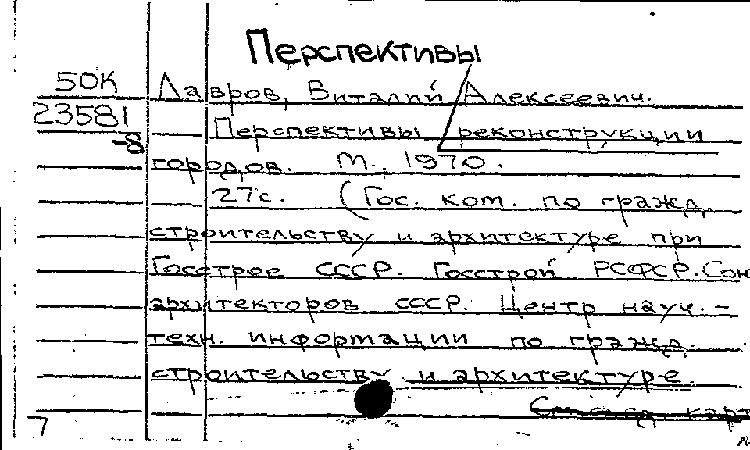 Перспективы
50К
23581
-8
Лавров, Виталий Алексеевич.
Перспективы реконструкции
городов. М., 1970.
27с. (Гос. ком. по гражд.
строительству и архитектуре при
Госстрое СССР. Госстрой РСФСР. Сою
архитекторов СССР. Центр науч.-
техн. информации по гражд.
строительству и архитектуре.
7